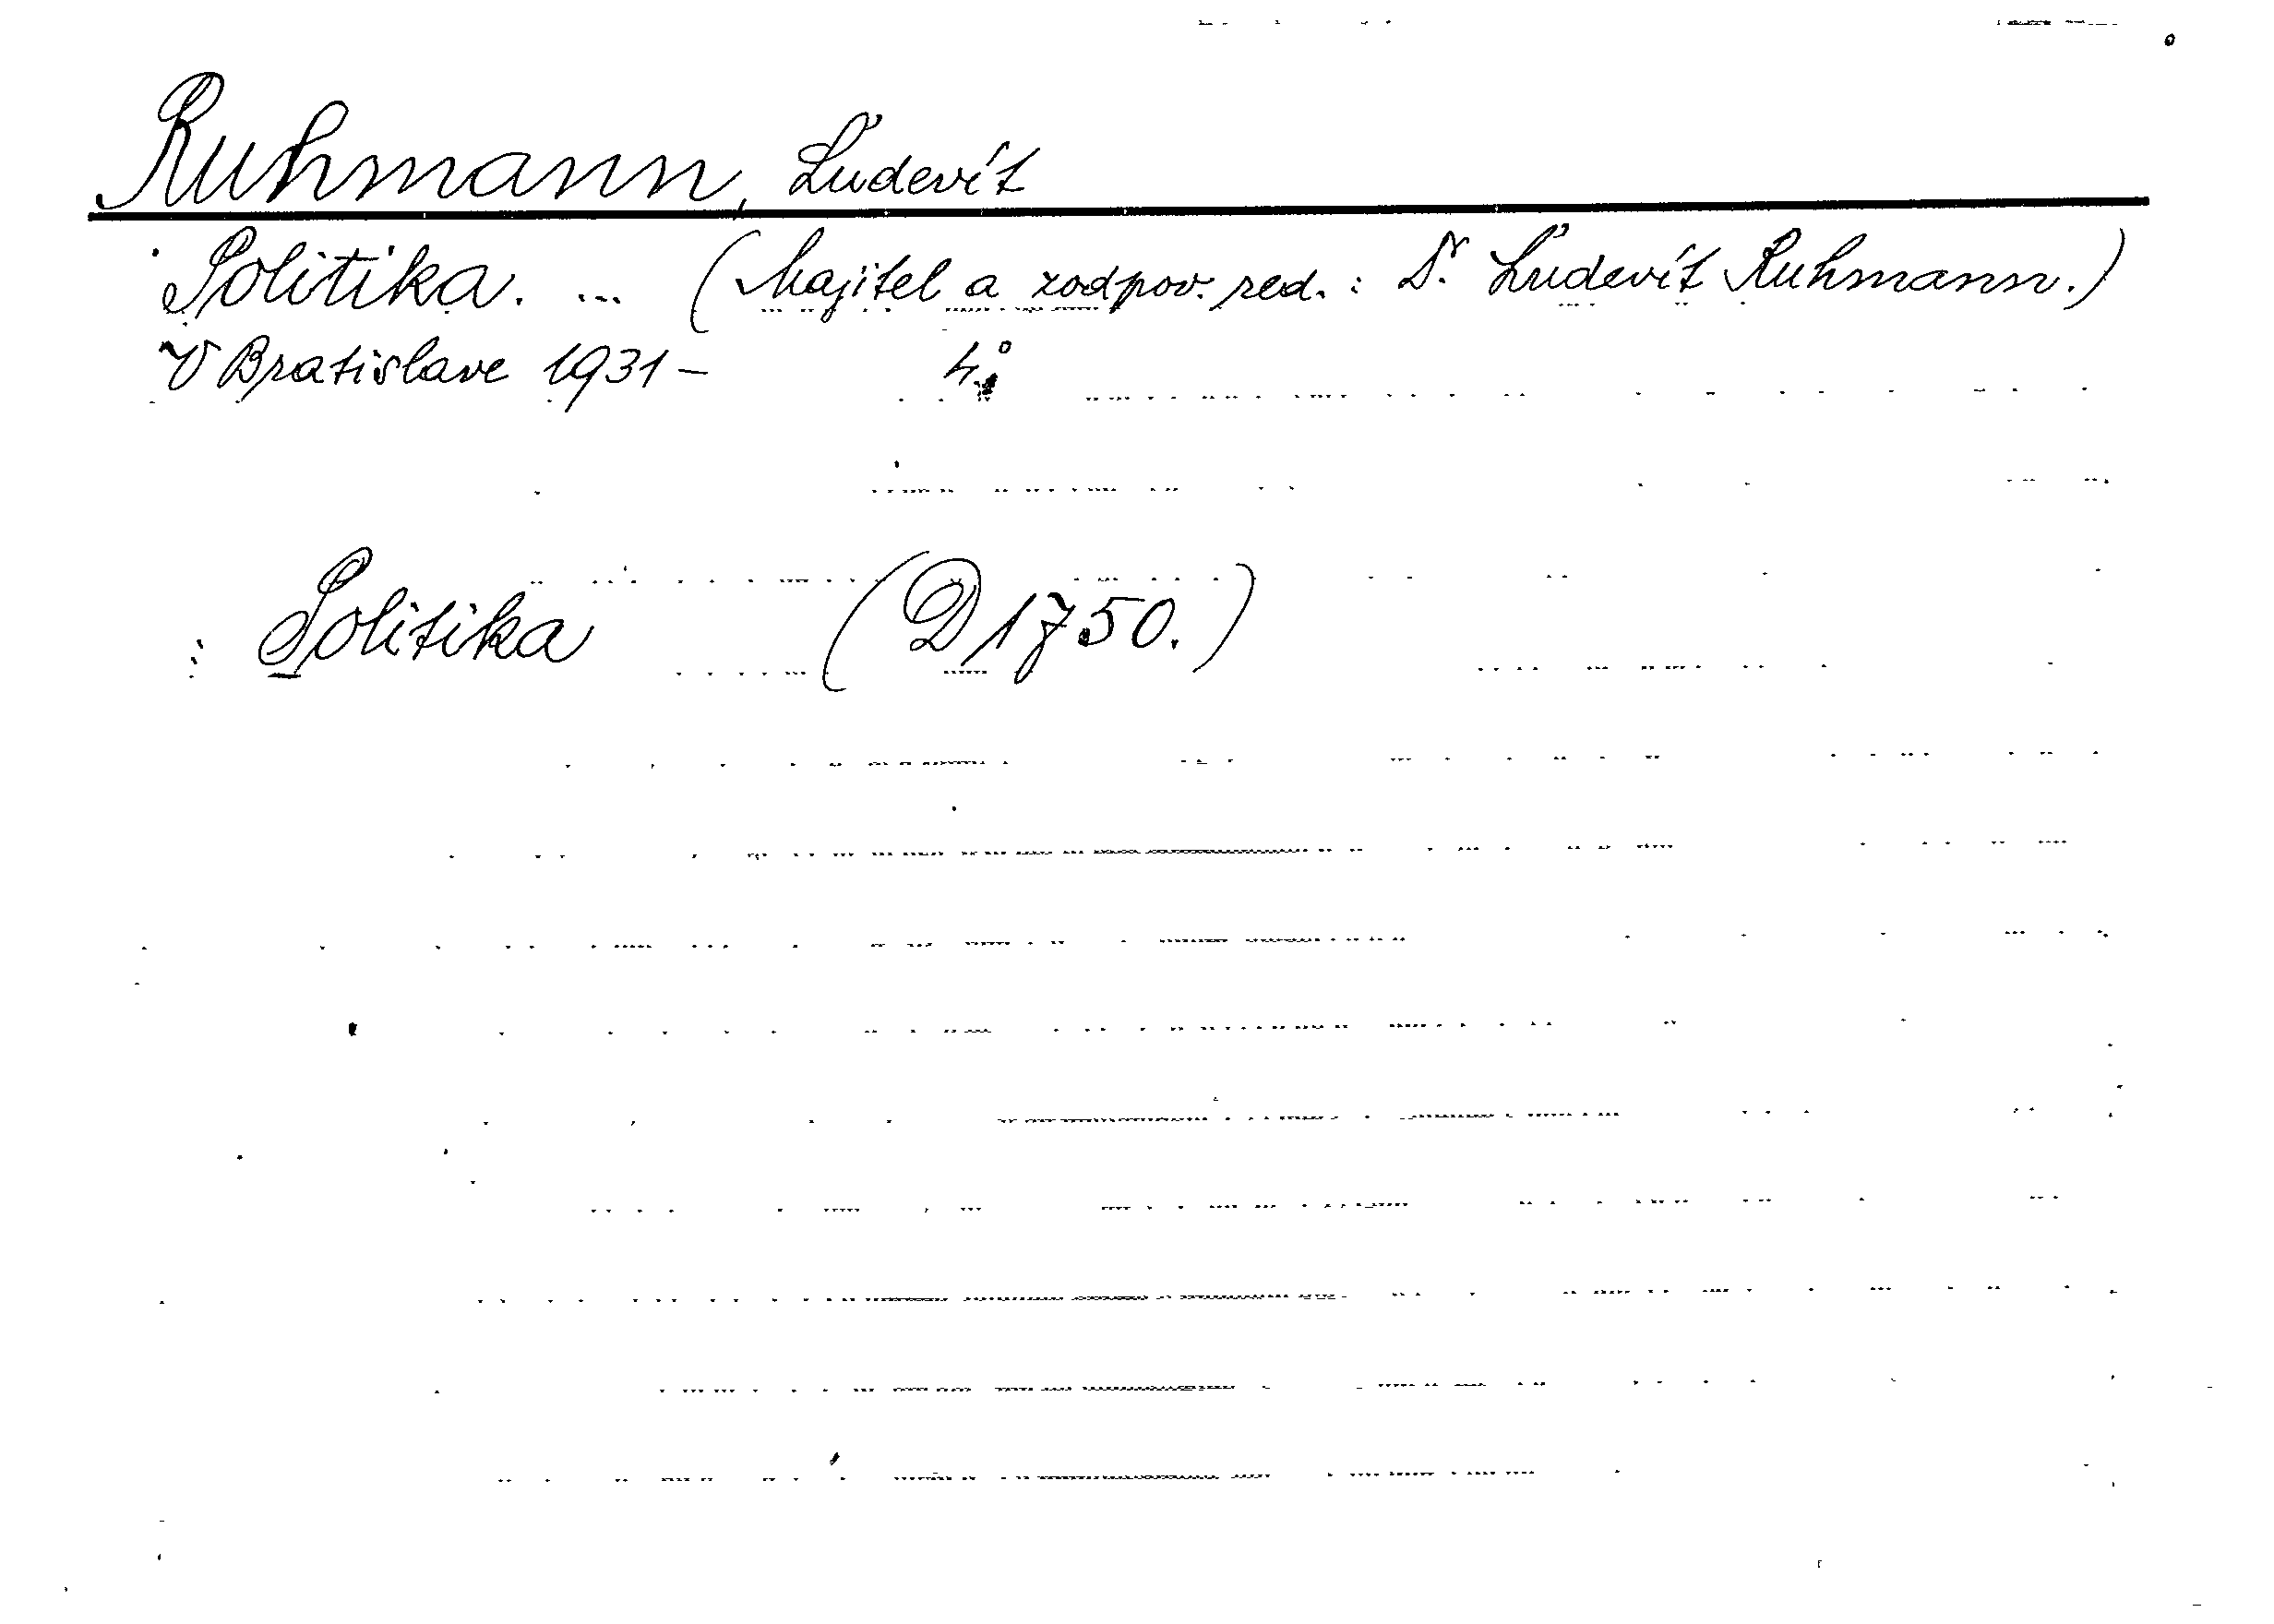 Ruhmann, Ľudevít
Politika. ... (Majitel a zodpov. red. : Dr. Ľudevít Ruhmann.)
V Bratislave 1931 - 4°
: Politika (D 1750.)